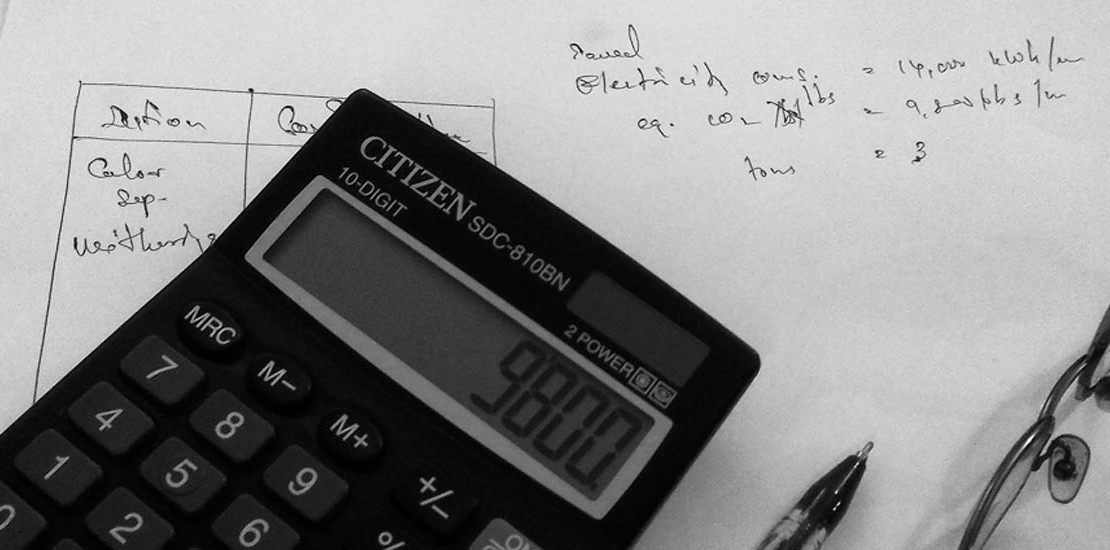 Saved
Electricity cons. = 14,000 kWh/m
eq. CO2 lbs = 9,800 lbs/m
tons = 3
Action
Color
Sep-
CITIZEN SDC-810BN
10-DIGIT
2 POWER
9800.
MRC
M-
M+
7
8
9
+/-
4
5
6
%
1
2
0